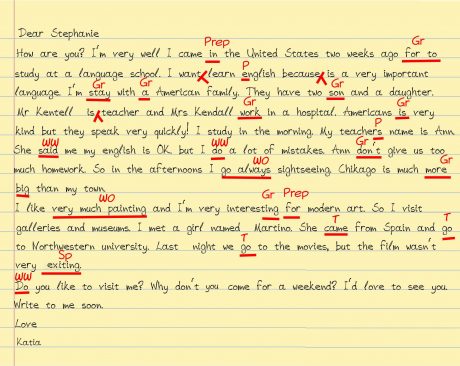 Dear Stephanie
Prep Gr
How are you? I'm very well I came in the United States two weeks ago for to
P
study at a language school. I want learn english because is a very important
Gr Gr Gr
language. I'm stay with a American family. They have two son and a daughter.
Gr Gr
Mr Kentell is teacher and Mrs Kendall work in a hospital. Americans is very
P
kind but they speak very quickly! I study in the morning. My teachers name is Ann.
WW WW Gr
She said me my english is OK. but I do a lot of mistakes. Ann don't give us too
WO Gr
much homework. So in the afternoons I go always sightseeing. Chikago is much more
big than my town.
WO Gr Prep
I like very much painting and I'm very interesting for modern art. So I visit
T T
galleries and museums. I met a girl named Martino. She came from Spain and go
T
to Northwestern university. Last night we go to the movies, but the film wasn't
Sp
very exiting.
WW
Do you like to visit me? Why don't you come for a weekend? I'd love to see you.
Write to me soon.
Love
Katia